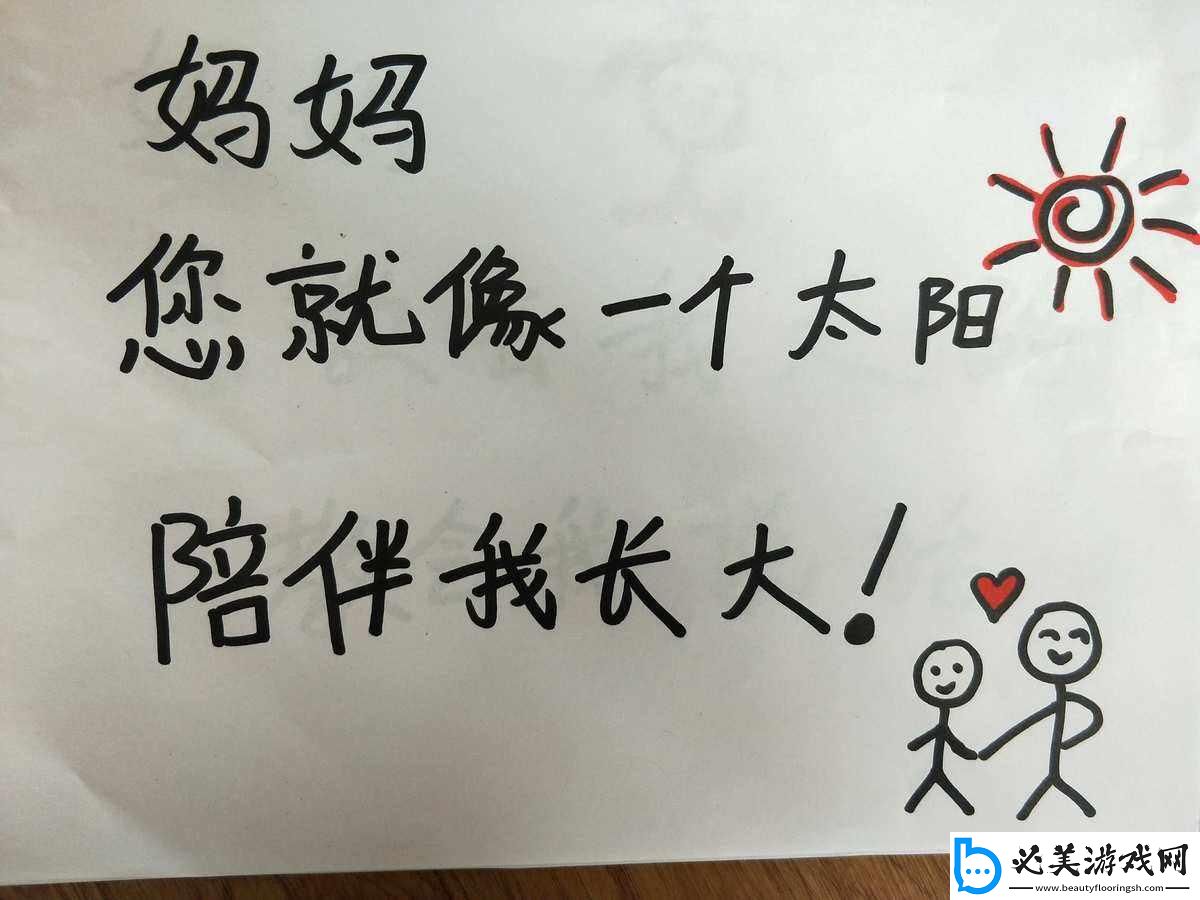 妈妈
您就像一个太阳
陪伴我长大!
必美游戏网
www.beautyflooringsh.com